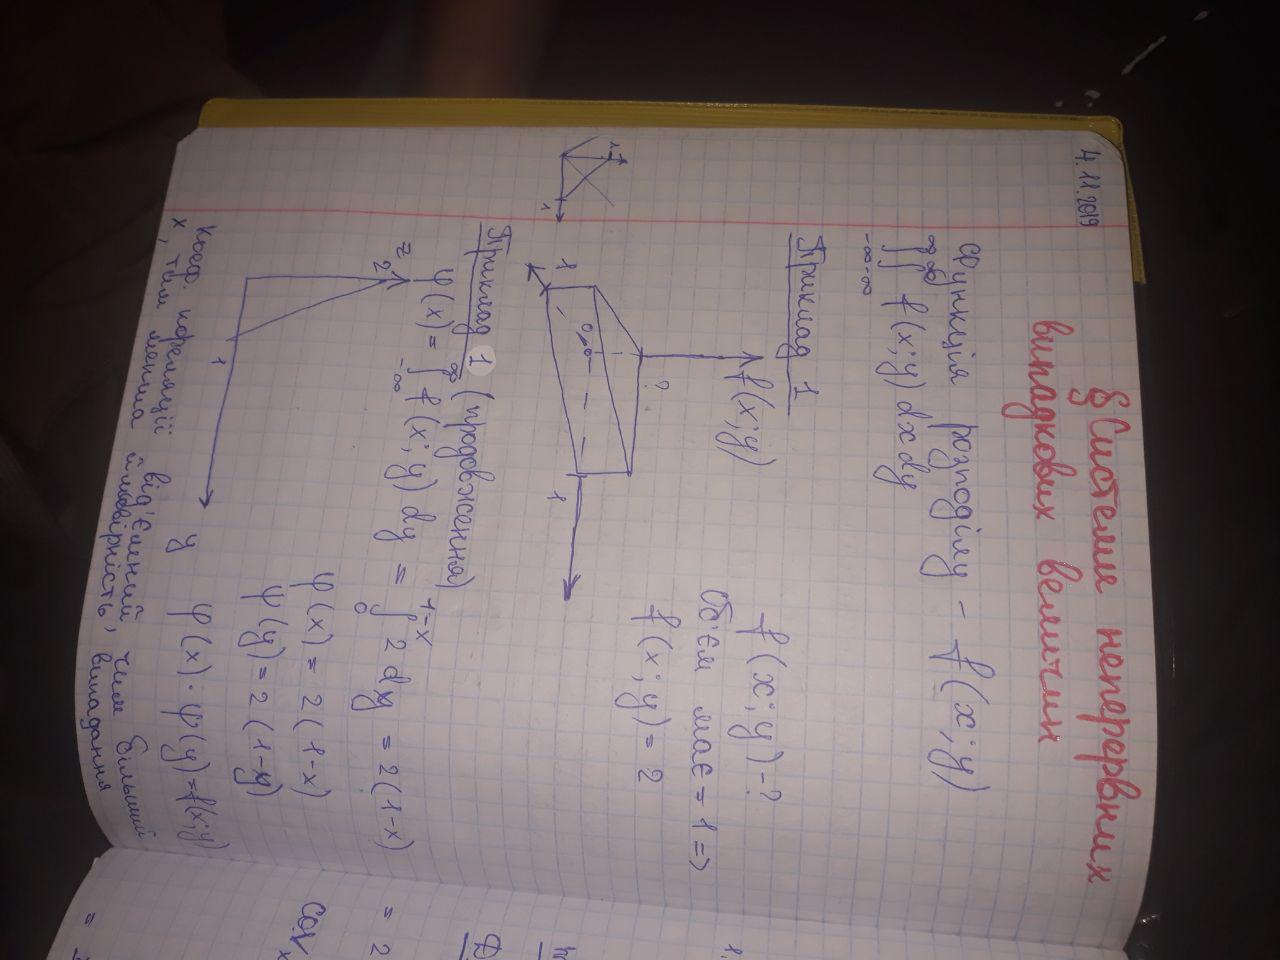 4.11.2019
§ Системи неперервних
випадкових величин
Функція розподілу - f(x;y)
∞ ∞
∫∫ f(x;y) dx dy
-∞ -∞
Приклад 1
f(x;y)
f(x;y)-?
Об'єм має = 1 =>
f(x;y) = 2
?
0 0
1
1
1
1
Приклад 1 (продовження)
φ(x) = ∫_{-∞}^{∞} f(x;y) dy = ∫_{0}^{1-x} 2 dy = 2(1-x)
z
2
1
y
φ(x) = 2(1-x)
ψ(y) = 2(1-y)
φ(x)·ψ(y)=f(x;y)
коеф. кореляції від'ємний, чим більший
x, тим менша ймовірність випадання
1,
= 2
cov x
=